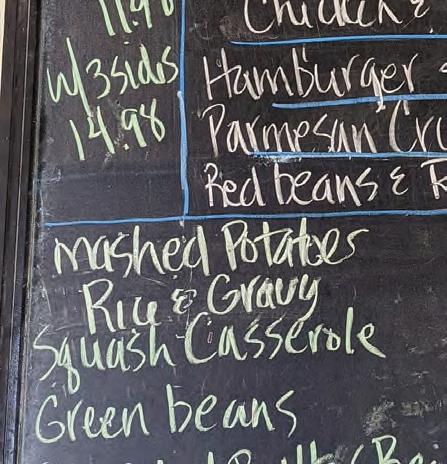 11.98
w/3sides
14.98
Chicken &
Hamburger
Parmesan
Red beans &
mashed Potatoes
Rice & Gravy
Squash Casserole
Green beans